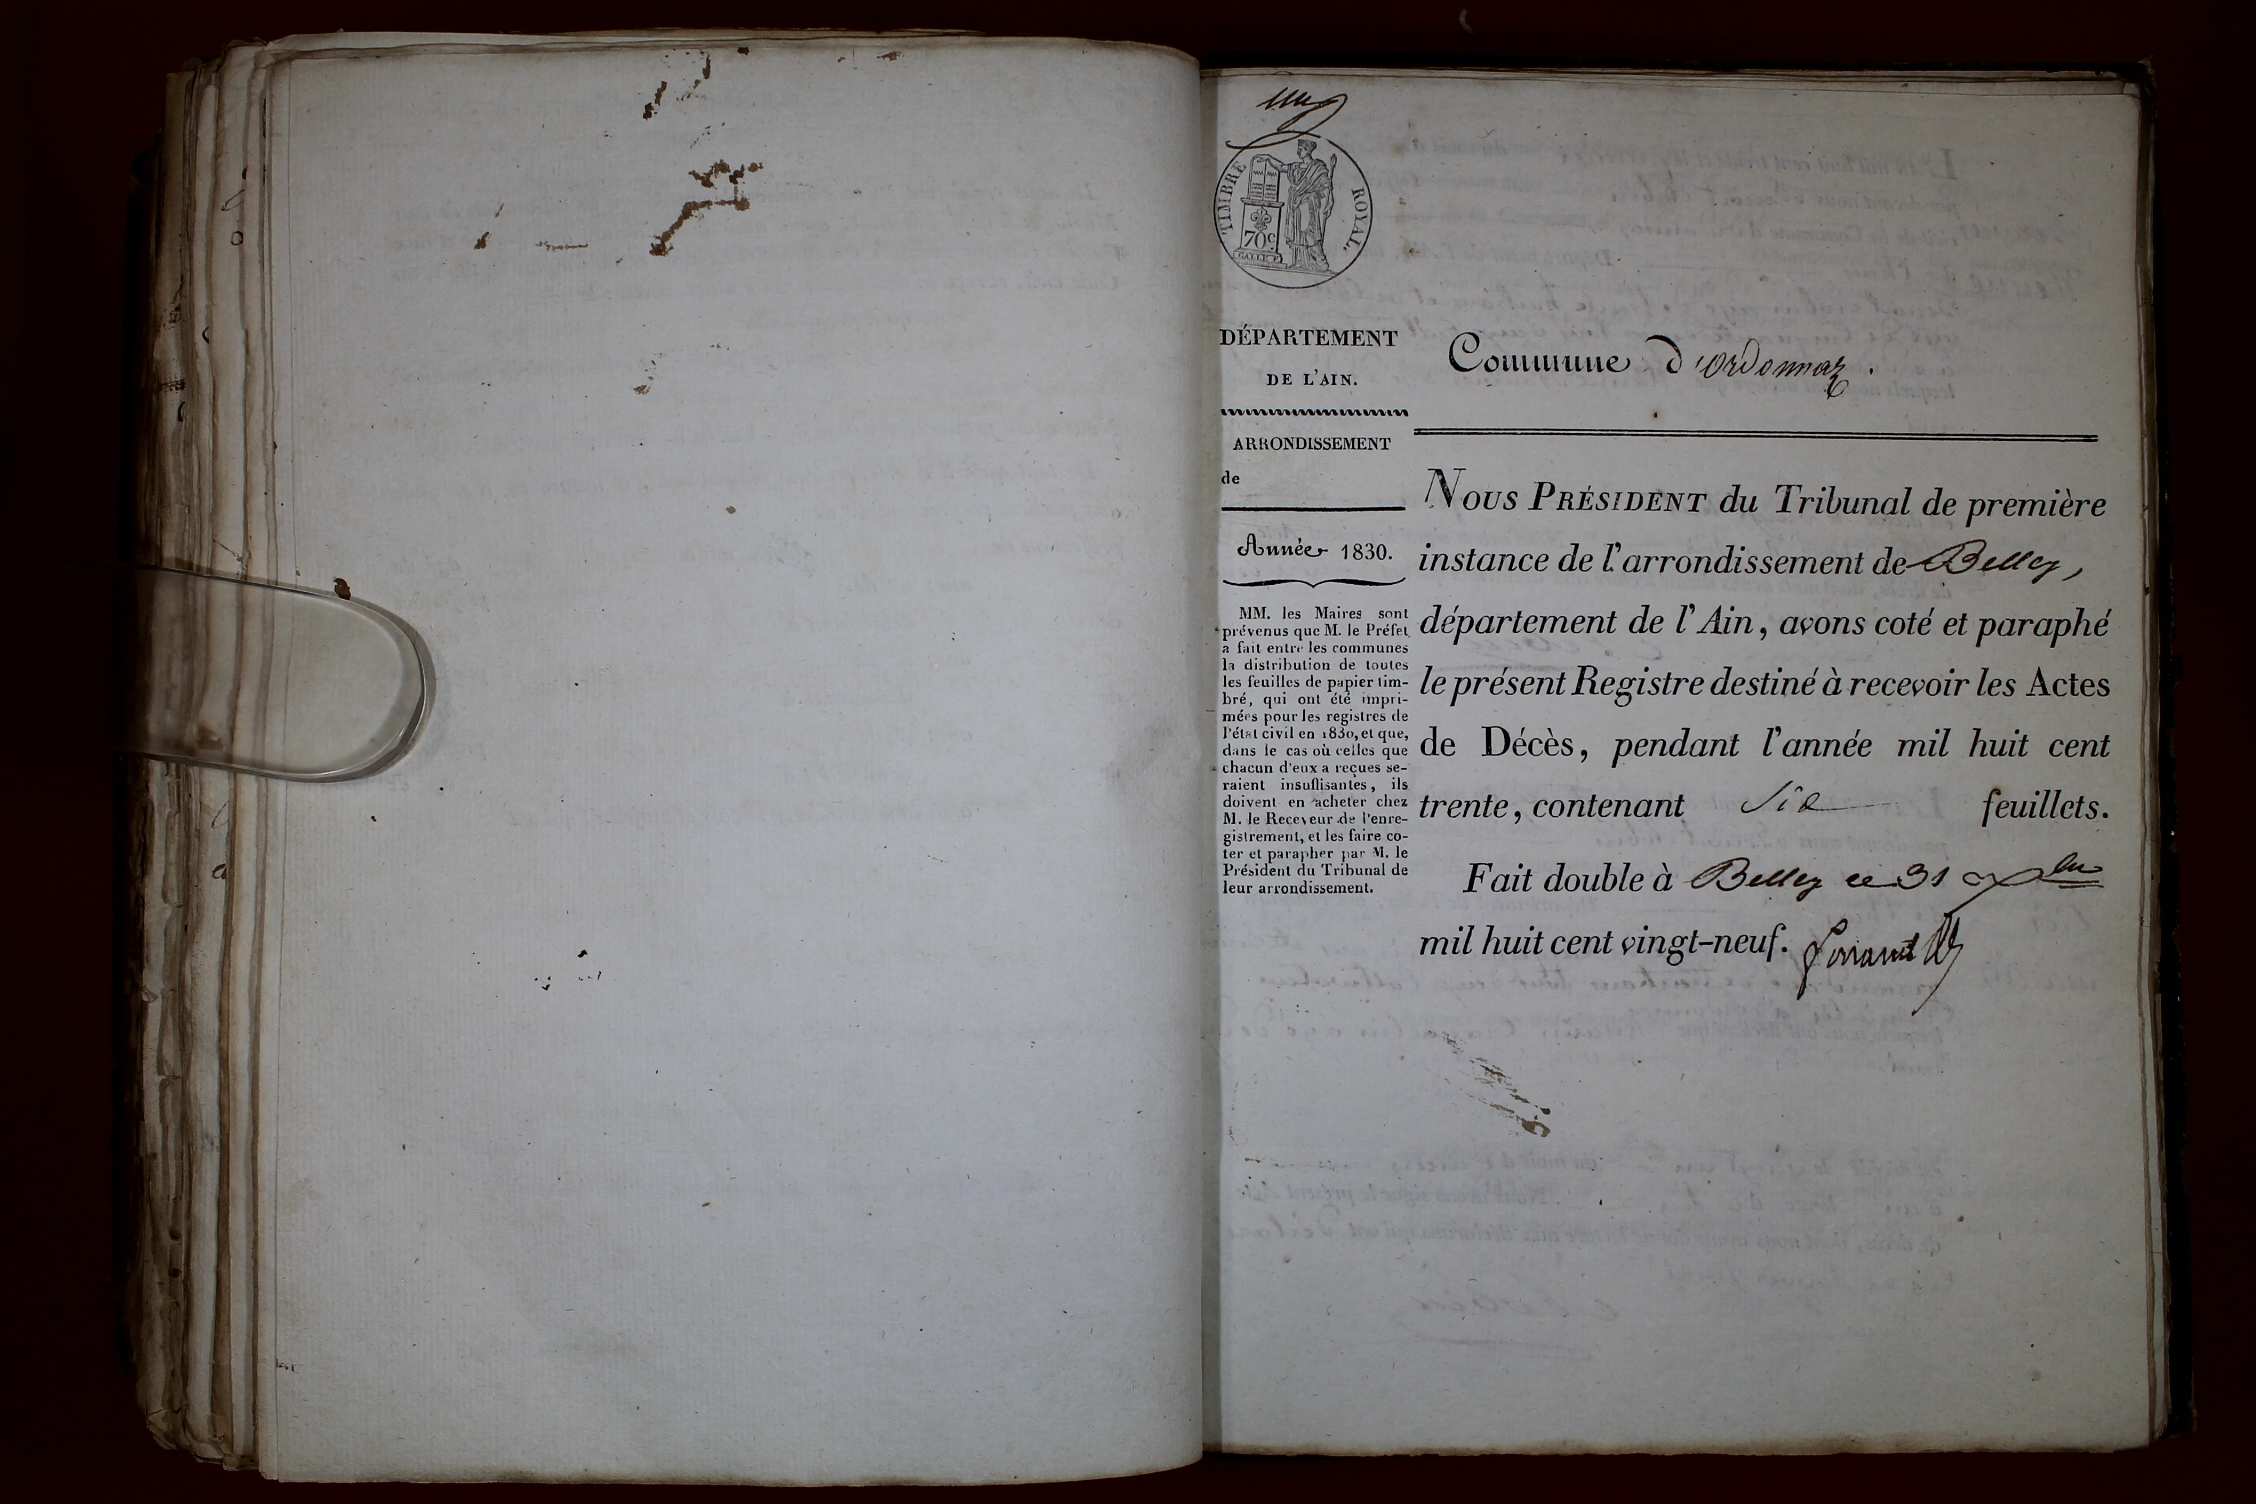 TIMBRE ROYAL.
70c
DÉPARTEMENT
DE L'AIN.
ARRONDISSEMENT
de
Année 1830.
MM. les Maires sont
prévenus que M. le Préfet
a fait entre les communes
la distribution de toutes
les feuilles de papier tim-
bré, qui ont été impri-
mées pour les registres de
l'état civil en 1830, et que,
dans le cas où celles que
chacun d'eux a reçues se-
raient insuffisantes, ils
doivent en acheter chez
M. le Receveur de l'enre-
gistrement, et les faire co-
ter et parapher par M. le
Président du Tribunal de
leur arrondissement.
Commune d'ordonnaz.
NOUS PRÉSIDENT du Tribunal de première
instance de l'arrondissement de Belley,
département de l'Ain, avons coté et paraphé
le présent Registre destiné à recevoir les Actes
de Décès, pendant l'année mil huit cent
trente, contenant Six feuillets.
Fait double à Belley ce 31 Xbre
mil huit cent vingt-neuf.